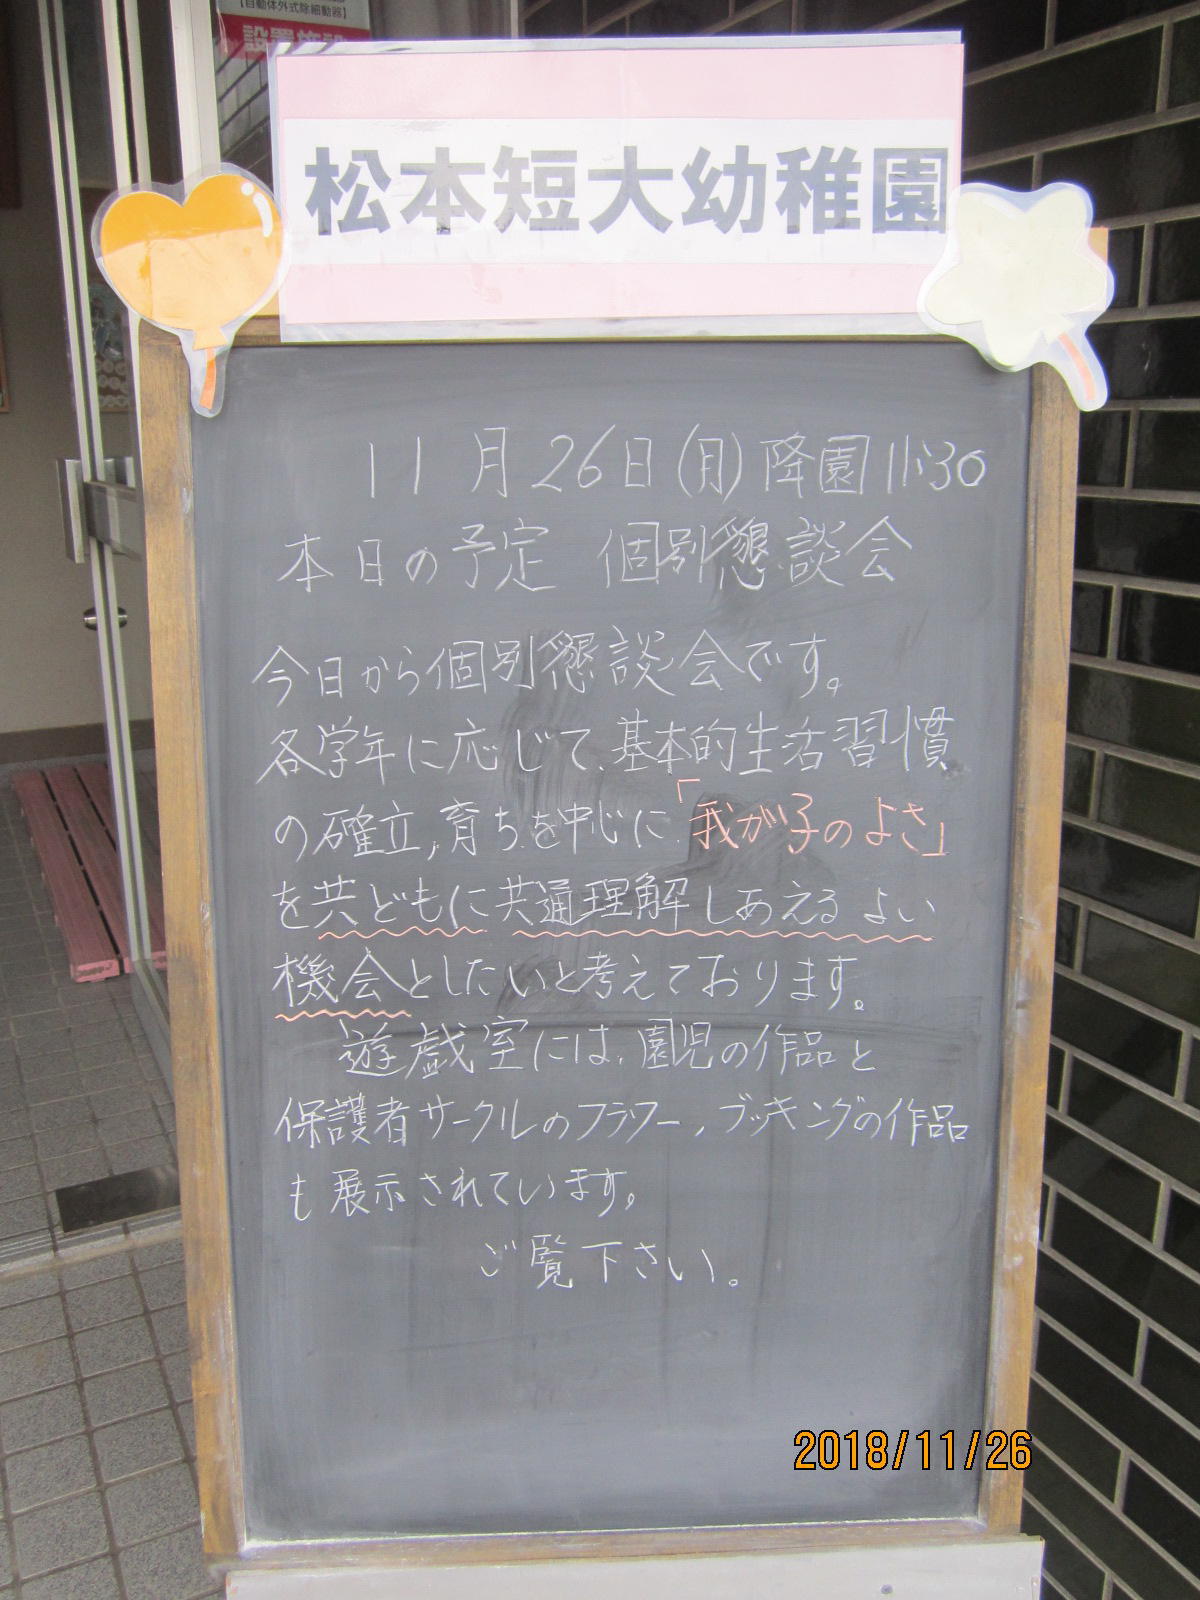 【自動体外式除細動器】
設置施設
松本短大幼稚園
11月26日(月)降園11:30
本日の予定 個別懇談会
今日から個別懇談会です。
各学年に応じて、基本的生活習慣
の確立、育ちを中心に「我が子のよさ」
を共どもに共通理解しあえるよい
機会としたいと考えております。
遊戯室には、園児の作品と
保護者サークルのフラワー、ブッキングの作品
も展示されています。
ご覧下さい。
2018/11/26